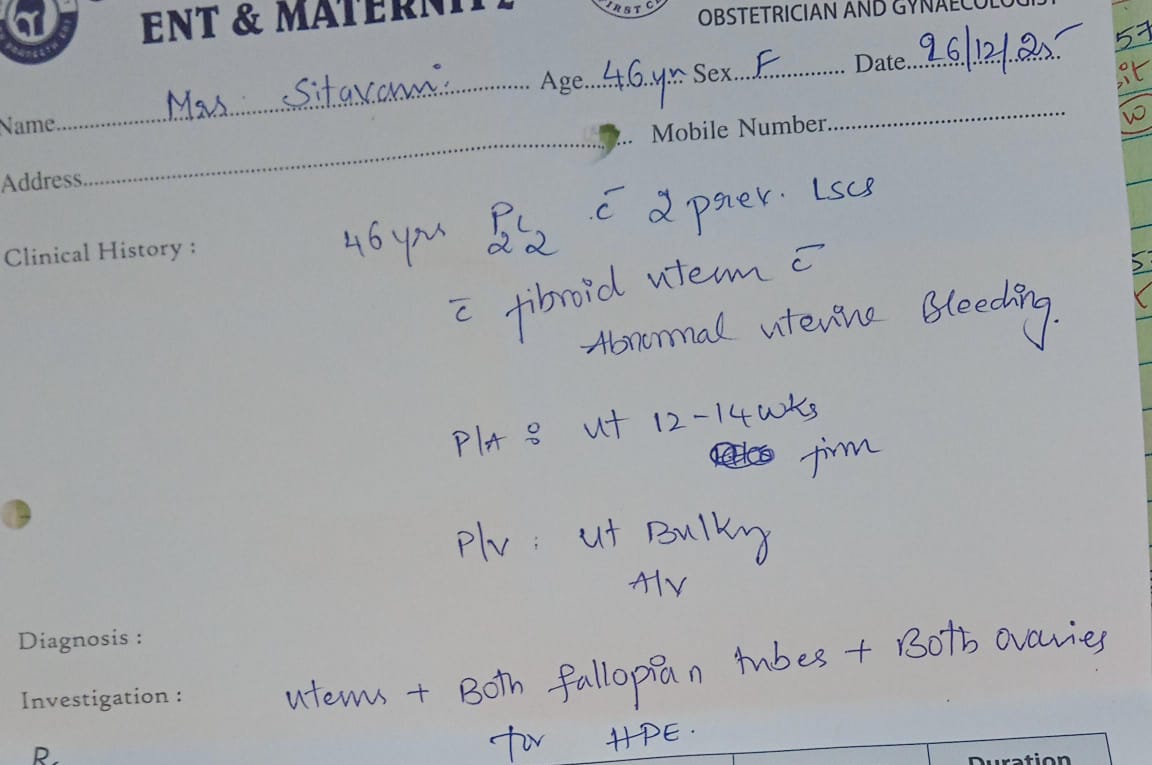 ENT & MATERNITY
OBSTETRICIAN AND GYNAECOLOGIST
Name Mrs. Sitavani Age 46 yr Sex F Date 26/12/25
Address Mobile Number
Clinical History : 46 yrs P2L2 c̄ 2 prev. LSCS
c̄ fibroid uterus c̄
Abnormal uterine Bleeding.
P/A : ut 12-14 wks
firm
P/v : ut Bulky
A/V
Diagnosis :
Investigation : uterus + Both fallopian tubes + Both ovaries
for HPE.
R
Duration